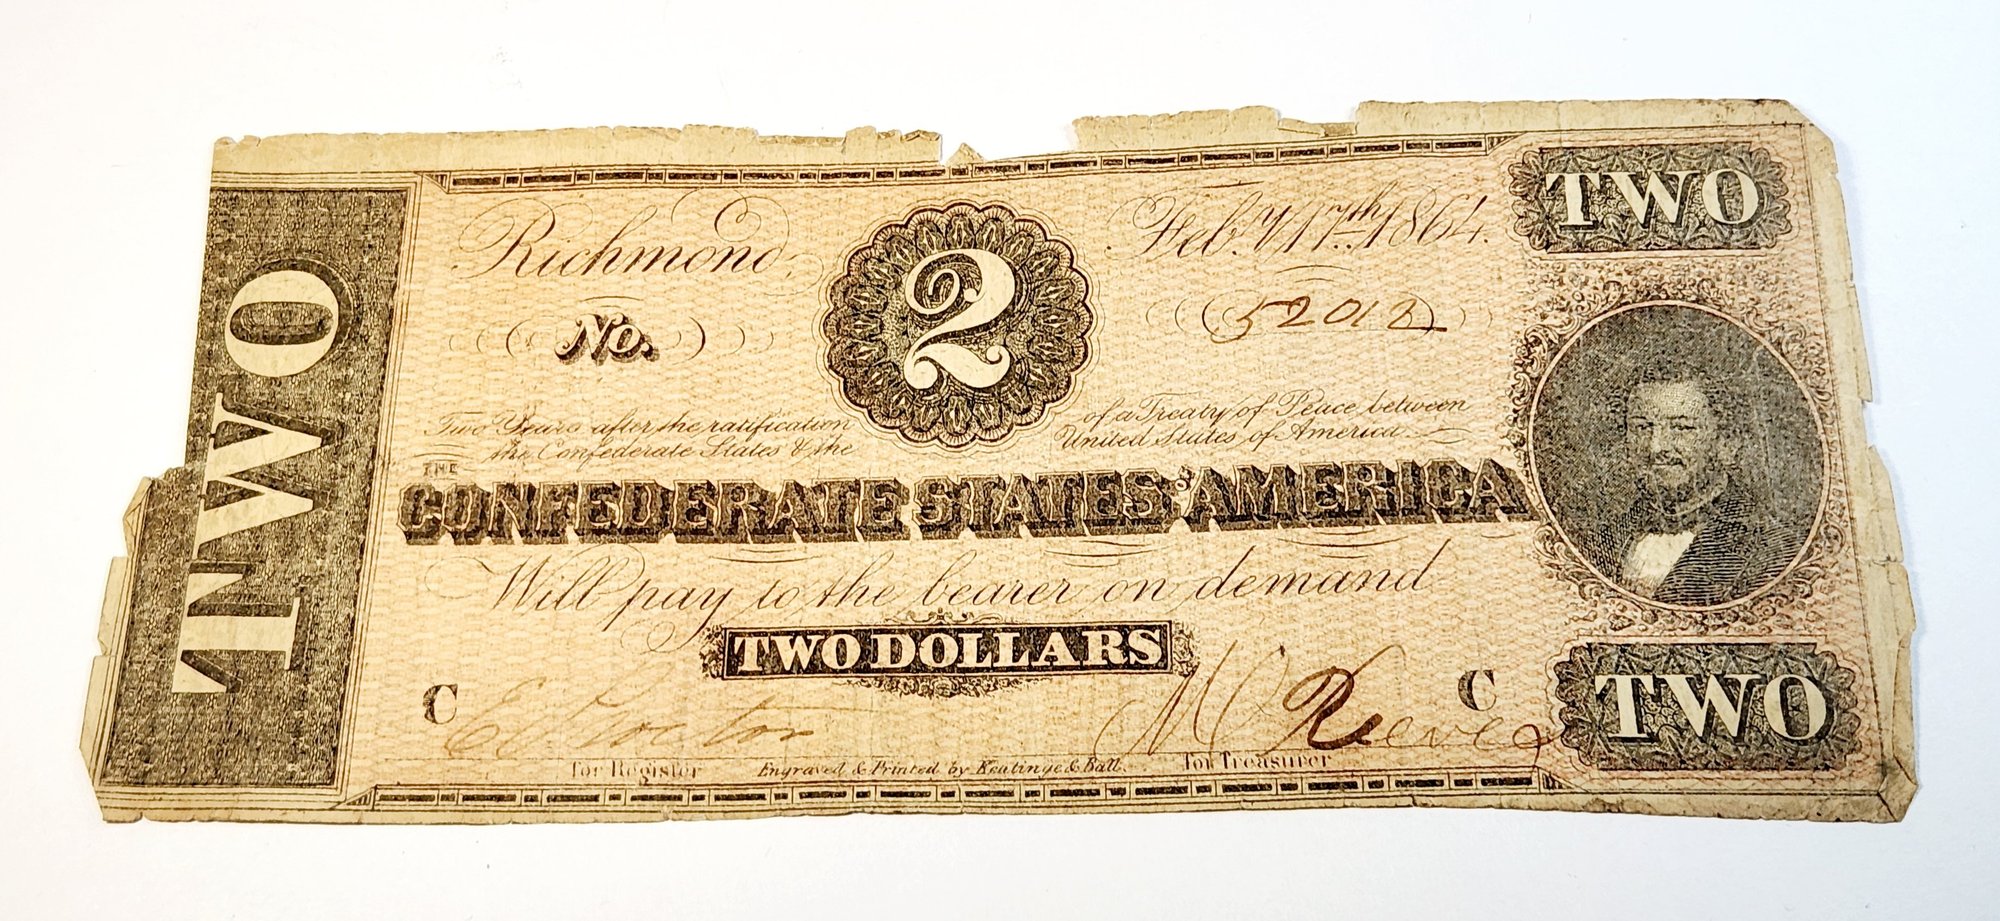 TWO
Richmond,
2
Feb.y 17th 1864.
TWO
No.
52012
Two Years after the ratification of a Treaty of Peace between
the Confederate States & the United States of America
THE
CONFEDERATE STATES OF AMERICA
Will pay to the bearer on demand
TWO DOLLARS
C
C
TWO
for Register
Engraved & Printed by Keatinge & Ball.
for Treasurer